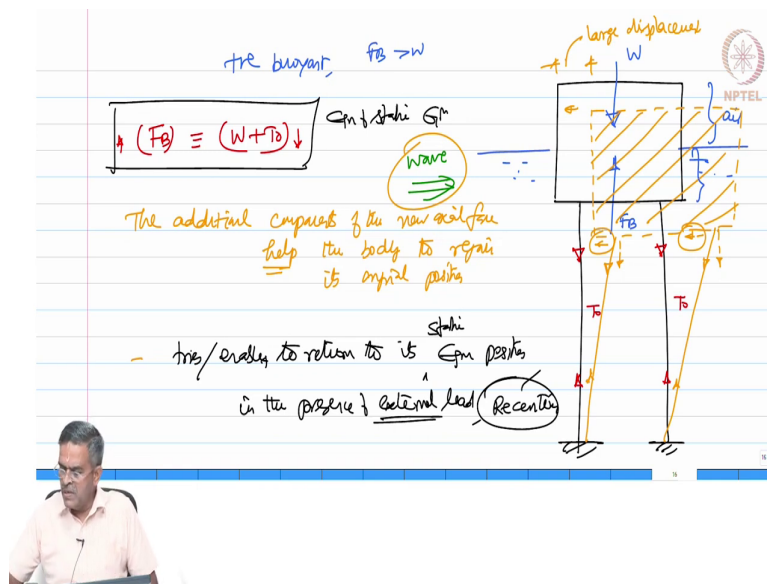 large displacemen
W
NPTEL
+ve buoyant, FB > W
(FB) ≡ (W+To)
static
air
wave
The additional components of the new axial force
FB
help the body to regain
its original position
To
To
static
tries/enables to return to its Eqm position
in the presence of external load,
Recenter
16
16